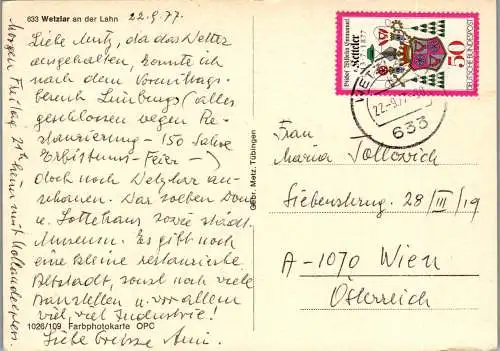 633 Wetzlar an der Lahn
22.9.77.
Liebe Mutz, da das Wetter
ausgehalten, konnte ich
nach dem Vormittags-
besuch Limburgs (alles
geschlossen wegen Re-
staurierung – 150 Jahre
Erzbistums-Feier –)
doch noch Wetzlar an-
schauen. War soeben Dom
u. Lottehaus sowie städt.
Museum. Es gibt noch
eine kleine restaurierte
Altstadt, sonst noch viele
Baustellen u. vor allem
viel, viel Industrie!
Liebe Grüsse
Morgen Freitag 21h
1026/109 Farbphotokarte OPC
Gebr. Metz, Tübingen
Bischof Wilhelm Emmanuel
Ketteler
1877
DEUTSCHE BUNDESPOST
50
22.-9.77
633
Frau
Maria Tollovich
28/III/19
A-1070 Wien
Österreich